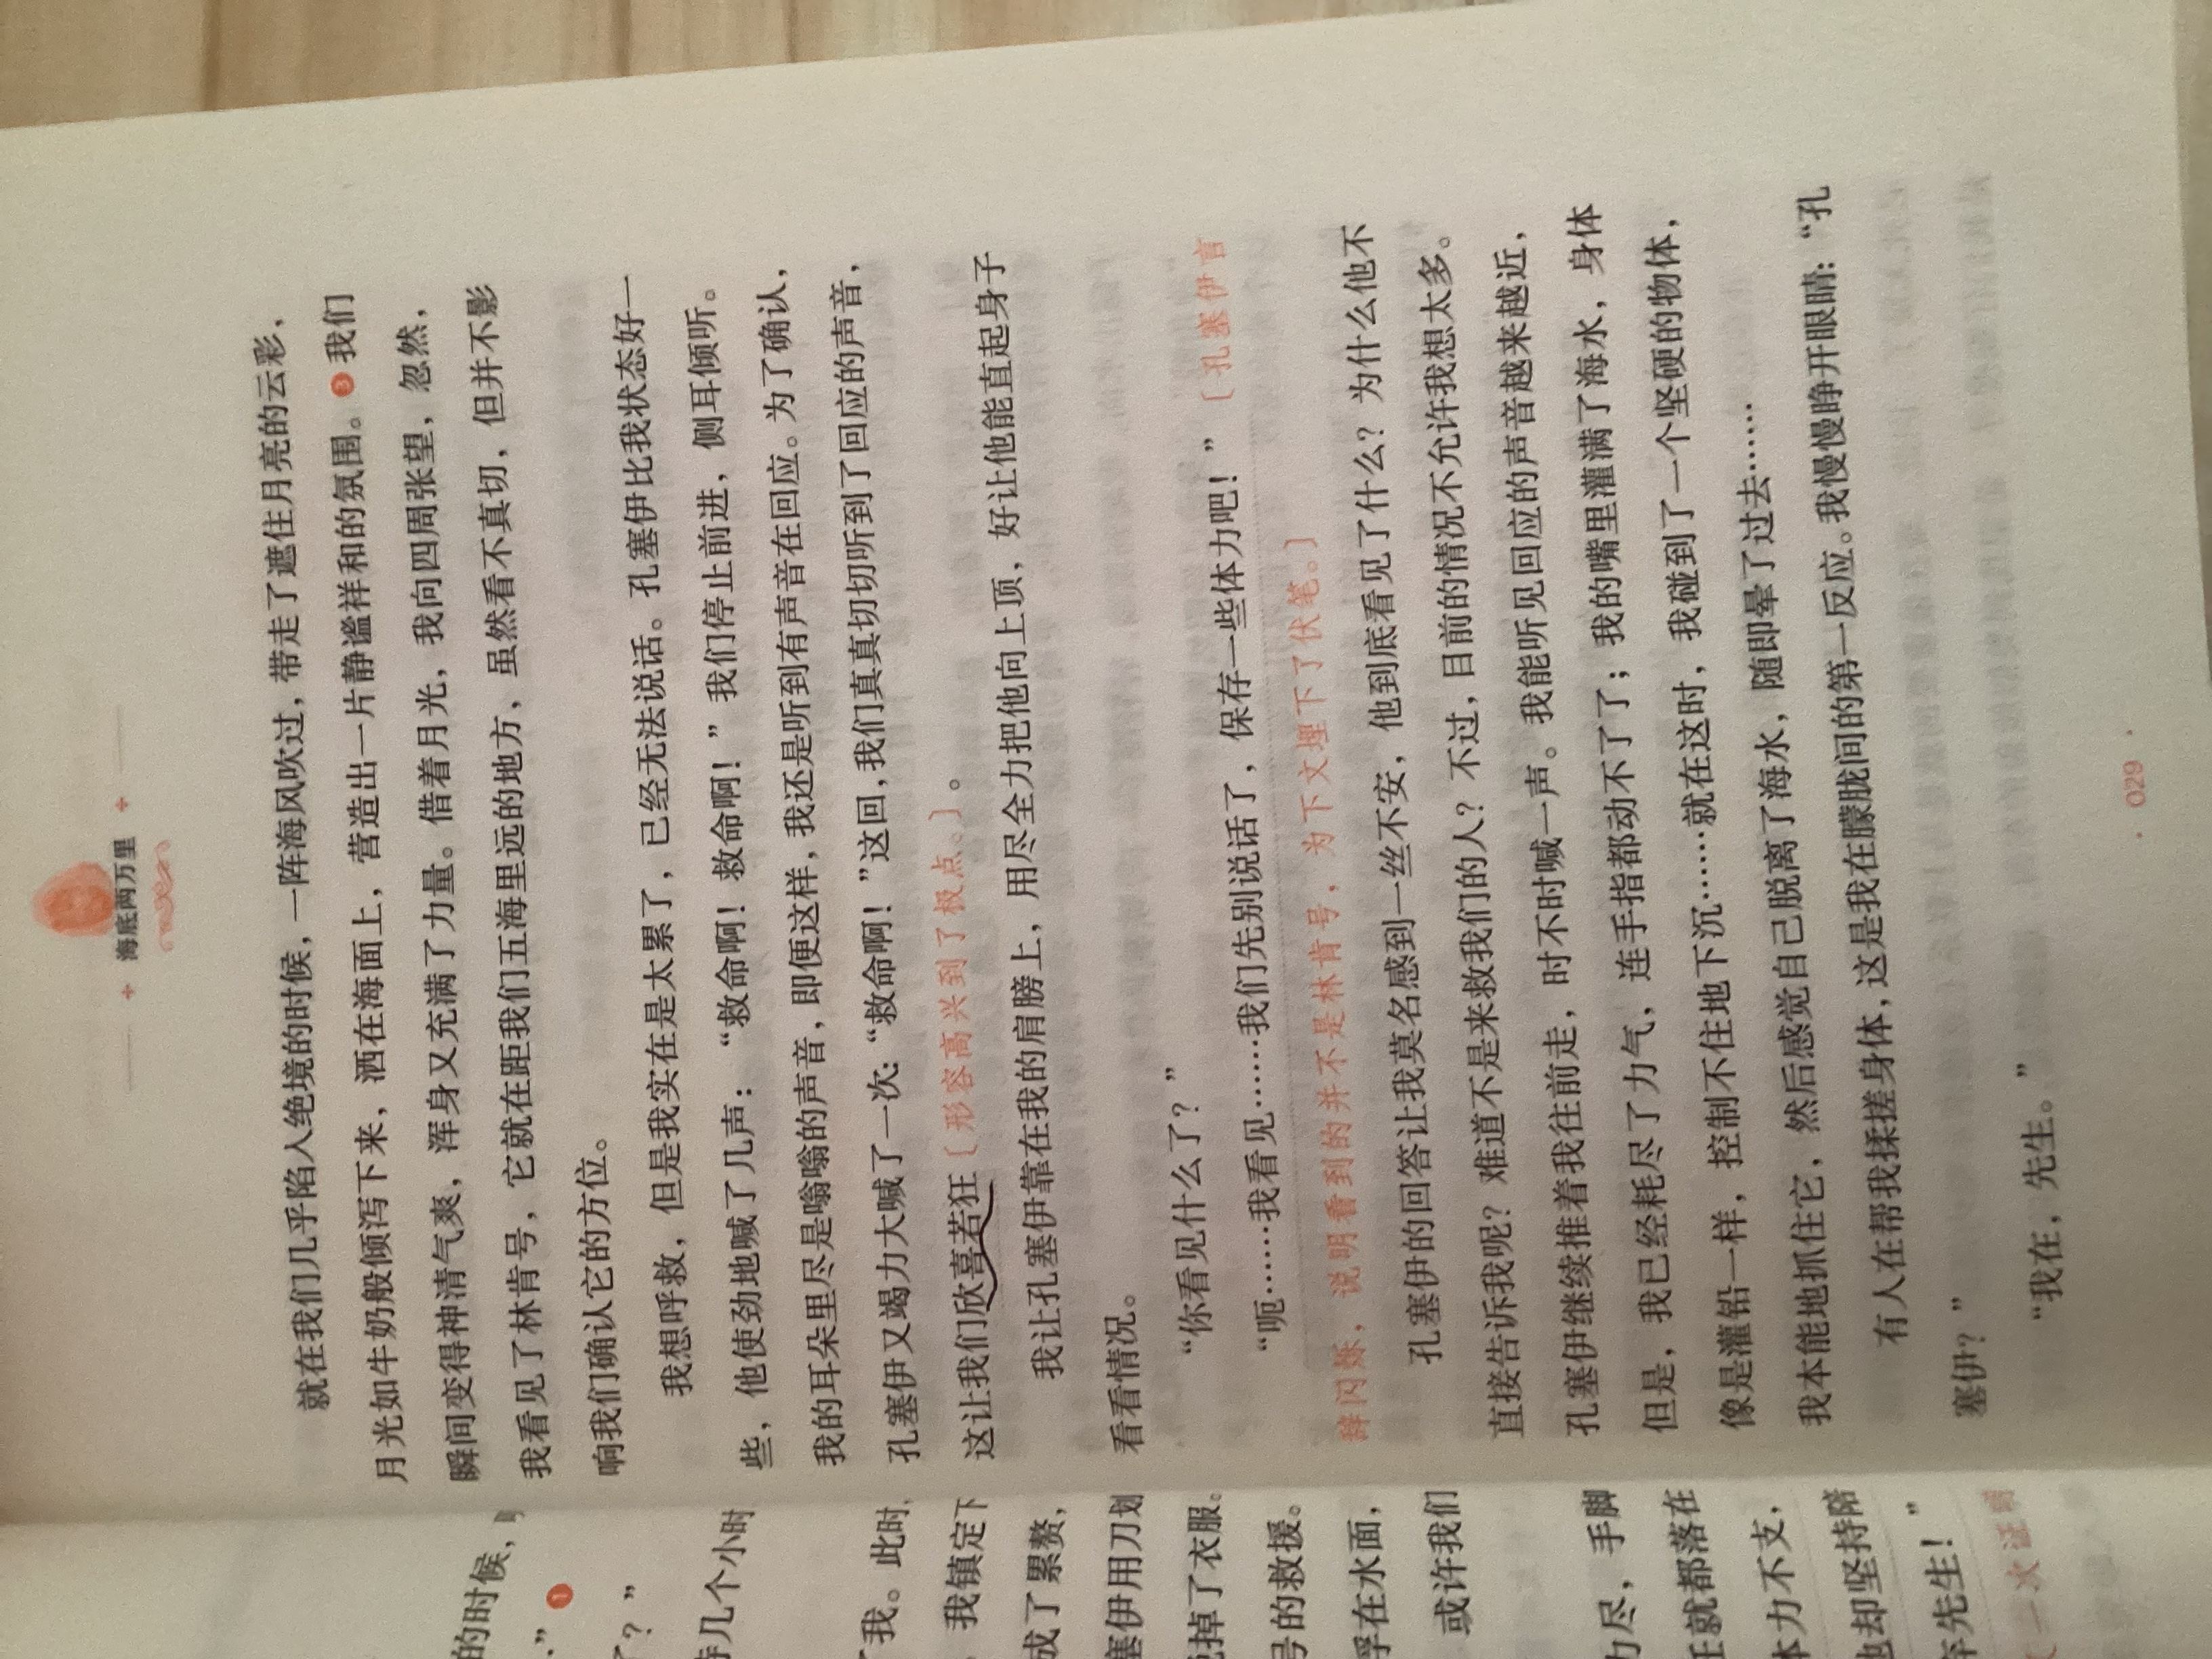 海底两万里
就在我们几乎陷入绝境的时候，一阵海风吹过，带走了遮住月亮的云彩，
月光如牛奶般倾泻下来，洒在海面上，营造出一片静谧祥和的氛围。❸我们
瞬间变得神清气爽，浑身又充满了力量。借着月光，我向四周张望，忽然，
我看见了林肯号，它就在距我们五海里远的地方，虽然看不真切，但并不影
响我们确认它的方位。
我想呼救，但是我实在是太累了，已经无法说话。孔塞伊比我状态好一
些，他使劲地喊了几声：“救命啊！救命啊！”我们停止前进，侧耳倾听。
我的耳朵里尽是嗡嗡的声音，即便这样，我还是听到有声音在回应。为了确认，
孔塞伊又竭力大喊了一次：“救命啊！”这回，我们真真切切听到了回应的声音，
这让我们欣喜若狂〔形容高兴到了极点。〕。
我让孔塞伊靠在我的肩膀上，用尽全力把他向上顶，好让他能直起身子
看看情况。
“你看见什么了？”
“呃……我看见……我们先别说话了，保存一些体力吧！”〔孔塞伊言
辞闪烁，说明看到的并不是林肯号，为下文埋下了伏笔。〕
孔塞伊的回答让我莫名感到一丝不安，他到底看见了什么？为什么他不
直接告诉我呢？难道不是来救我们的人？不过，目前的情况不允许我想太多。
孔塞伊继续推着我往前走，时不时喊一声。我能听见回应的声音越来越近，
但是，我已经耗尽了力气，连手指都动不了了；我的嘴里灌满了海水，身体
像是灌铅一样，控制不住地下沉……就在这时，我碰到了一个坚硬的物体，
我本能地抓住它，然后感觉自己脱离了海水，随即晕了过去……
有人在帮我揉搓身体，这是我在朦胧间的第一反应。我慢慢睁开眼睛：“孔
塞伊？”
“我在，先生。”
029
的时候，
.”❶
？”
几个小时
我。此时，
我镇定下
成了累赘，
塞伊用刀划
掉了衣服。
号的救援。
浮在水面，
或许我们
力尽，手脚
就都落在
体力不支，
他却坚持陪
先生！”
一次证明